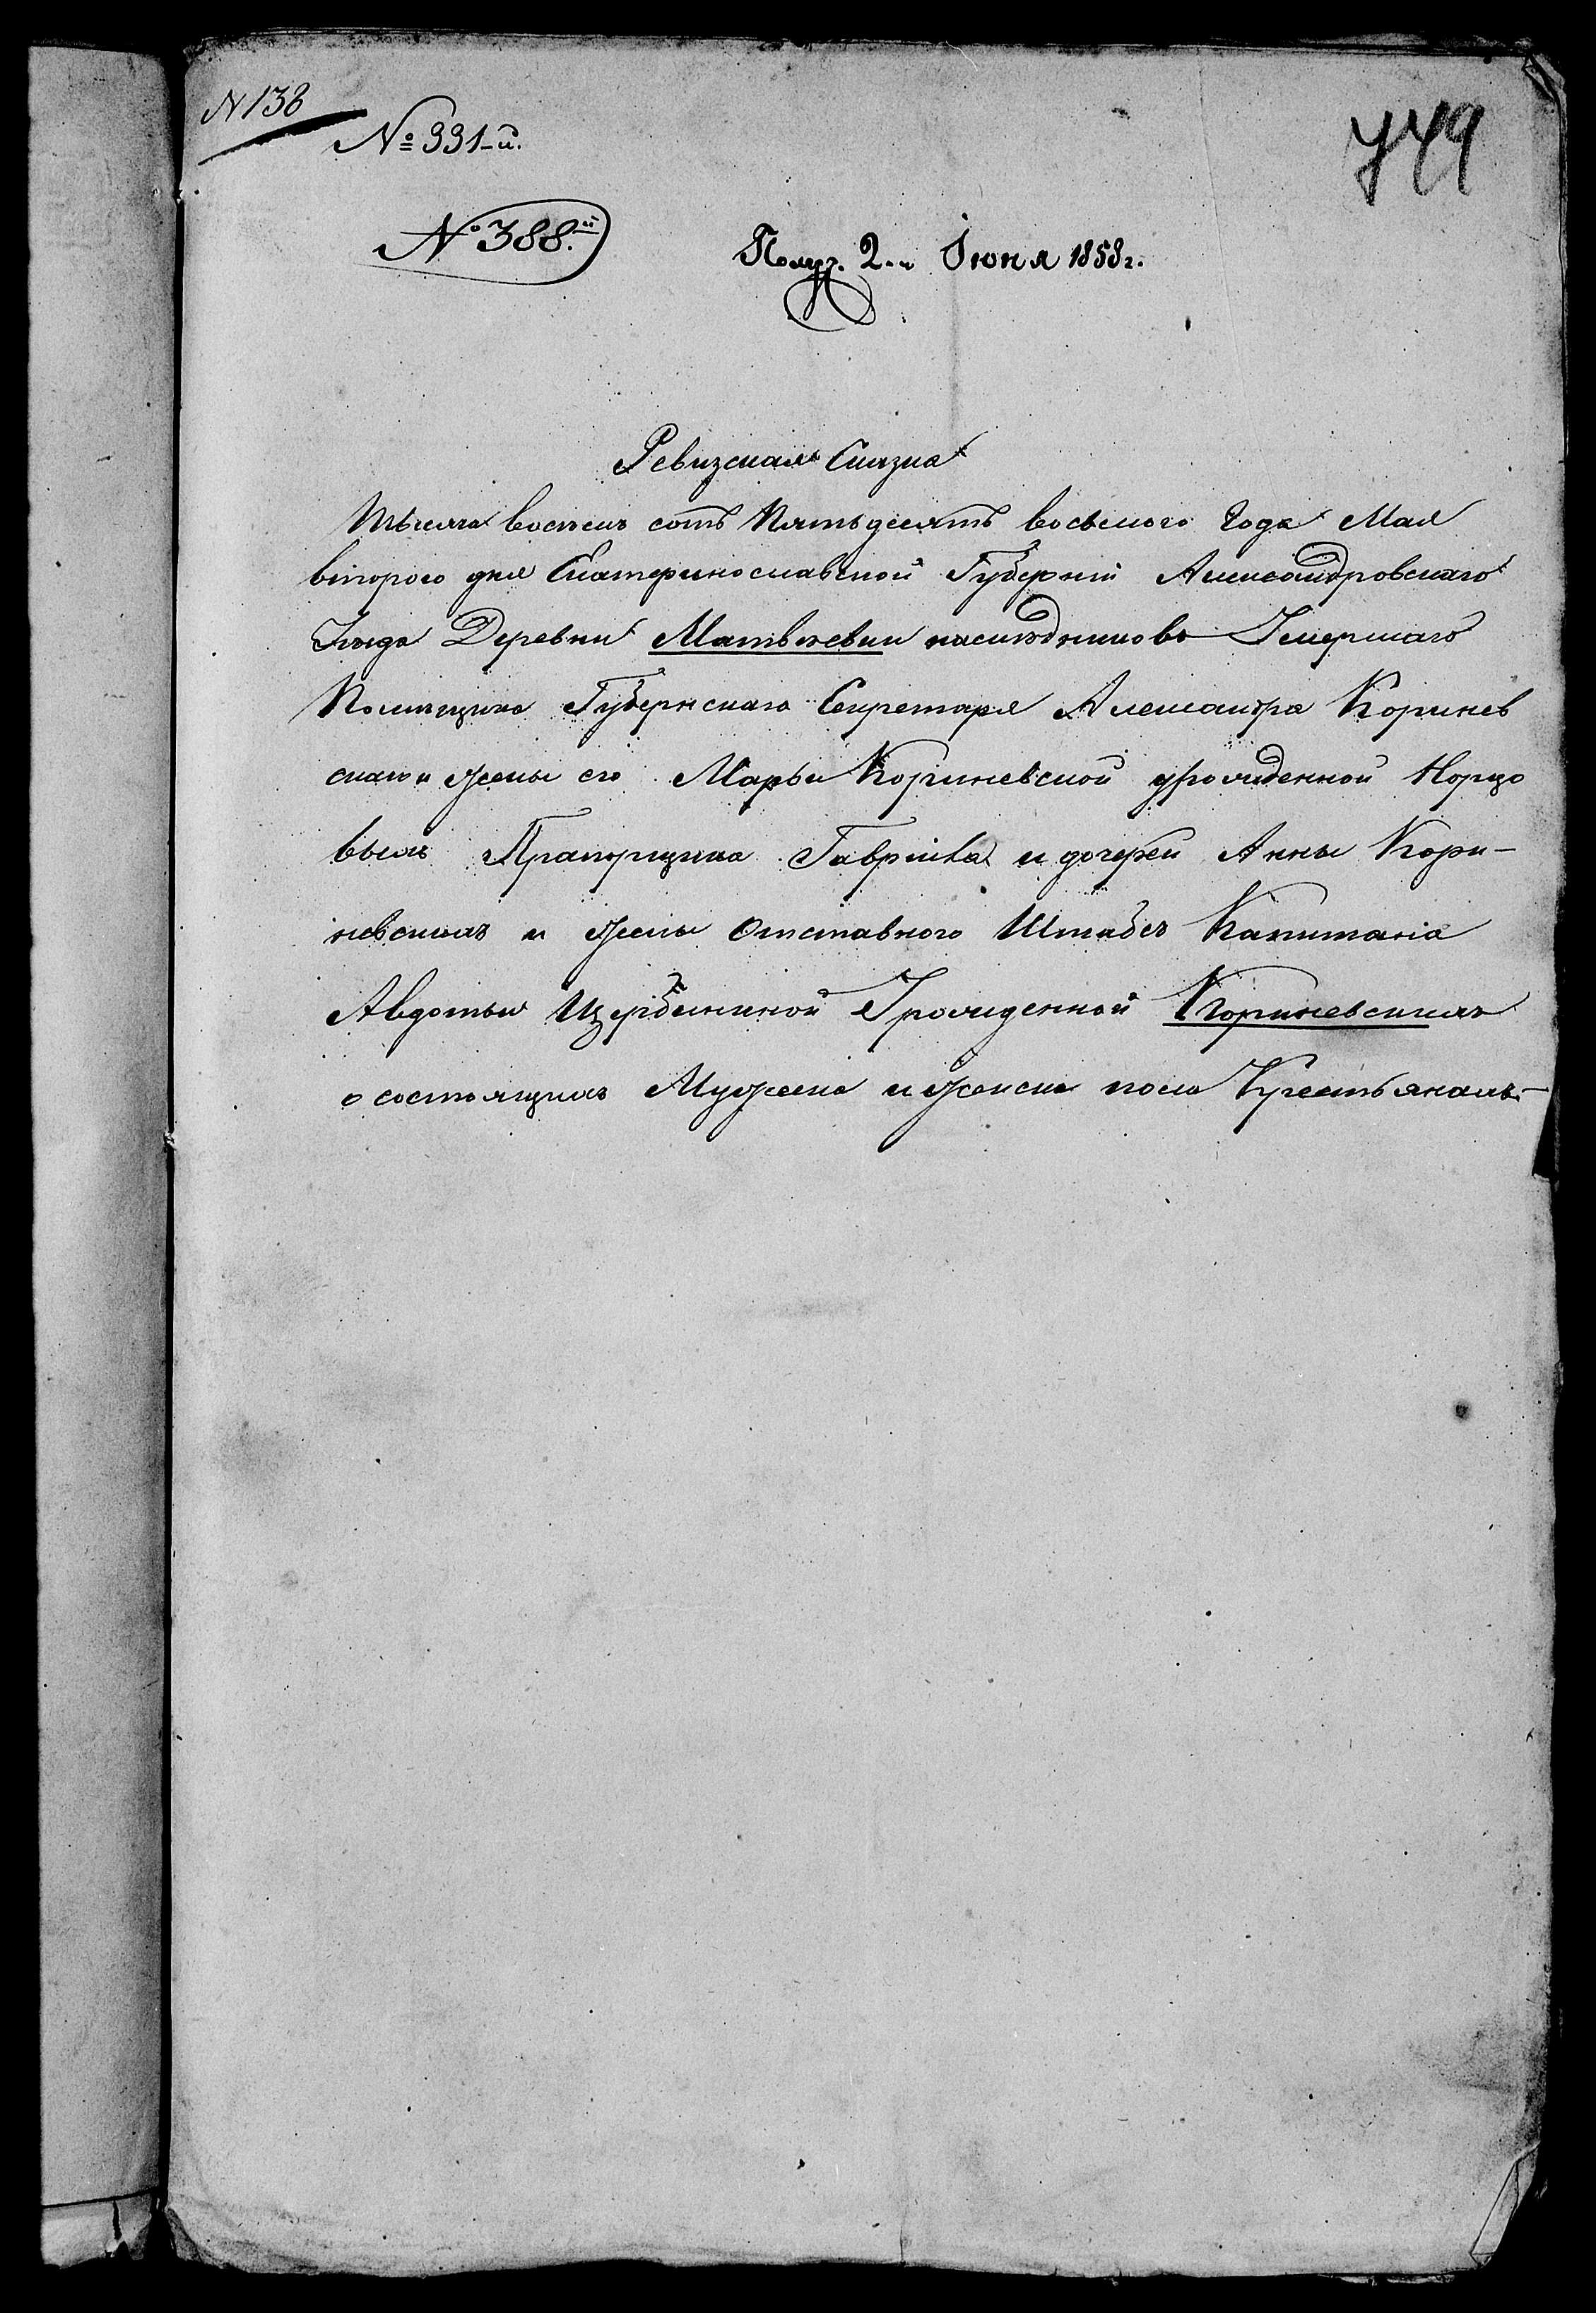 N 138
№ 331-й.
749
№ 388.й
Получ. 2-й Іюня 1858 г.
Ревизская Сказка
Тысяча восемь сотъ Пятьдесятъ восьмого Года Мая
второго дня Екатеринославской Губерніи Александровскаго
Уезда Деревни Матвеевки наследниковъ Умершаго
Помещика Губернскаго Секретаря Александра Коринев
скаго и жены его Марьи Кориневской урожденной
Прапорщика Гавріила и дочерей Анны Кори-
невскихъ и жены Отставного Штабсъ Капитана
Авдотьи Щербининой Урожденной Кориневскихъ
о состоящихъ Мужеска и женска пола Крестьянахъ.-